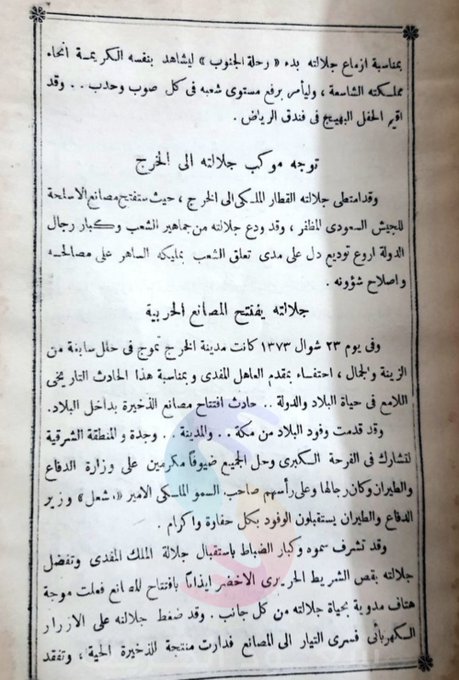 بمناسبة ازماع جلالته بدء « رحلة الجنوب » ليشاهد بنفسه الكريمة انحاء
مملكته الشاسعة ، وليأمر برفع مستوى شعبه فى كل صوب وحدب . . وقد
اقيم الحفل البهيج فى فندق الرياض .
توجه موكب جلالته الى الخرج
وقد امتطى جلالته القطار الملكى الى الخرج ، حيث ستفتح مصانع الاسلحة
للجيش السعودى المظفر ، وقد ودع جلالته من جماهير الشعب وكبار رجال
الدولة اروع توديع دل على مدى تعلق الشعب بمليكه الساهر على مصالحه
واصلاح شؤونه .
جلالته يفتتح المصانع الحربية
وفى يوم ٢٣ شوال ١٣٧٣ كانت مدينة الخرج تموج فى حلل سابغة من
الزينة والجمال ، احتفاء بمقدم العاهل المفدى وبمناسبة هذا الحادث التاريخى
اللامع فى حياة البلاد والدولة . . حادث افتتاح مصانع الذخيرة بداخل البلاد.
وقد قدمت وفود البلاد من مكة . . والمدينة . . وجدة والمنطقة الشرقية
لتشارك فى الفرحة الكبرى وحل الجميع ضيوفا مكرمين على وزارة الدفاع
والطيران وكان رجالها وعلى رأسهم صاحب السمو الملكى الامير « مشعل » وزير
الدفاع والطيران يستقبلون الوفود بكل حفارة واكرام .
وقد تشرف سموه وكبار الضباط باستقبال جلالة الملك المفدى وتفضل
جلالته بقص الشريط الحريرى الاخضر ايذانا بافتتاح المصانع فعلت موجة
هتاف مدوية بحياة جلالته من كل جانب . وقد ضغط جلالته على الازرار
الكهربائى فسرى التيار الى المصانع فدارت منتجة للذخيرة الحية ، وتفقد